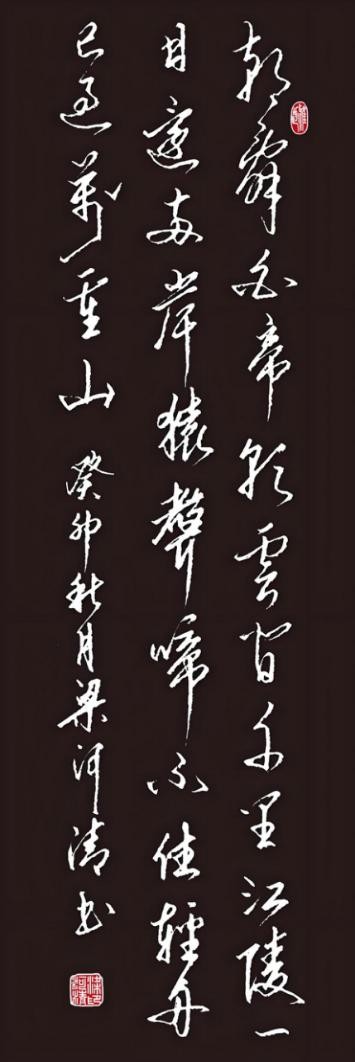 朝辭白帝彩雲間千里江陵一
日還兩岸猿聲啼不住輕舟
已過萬重山 癸卯秋月梁河清书